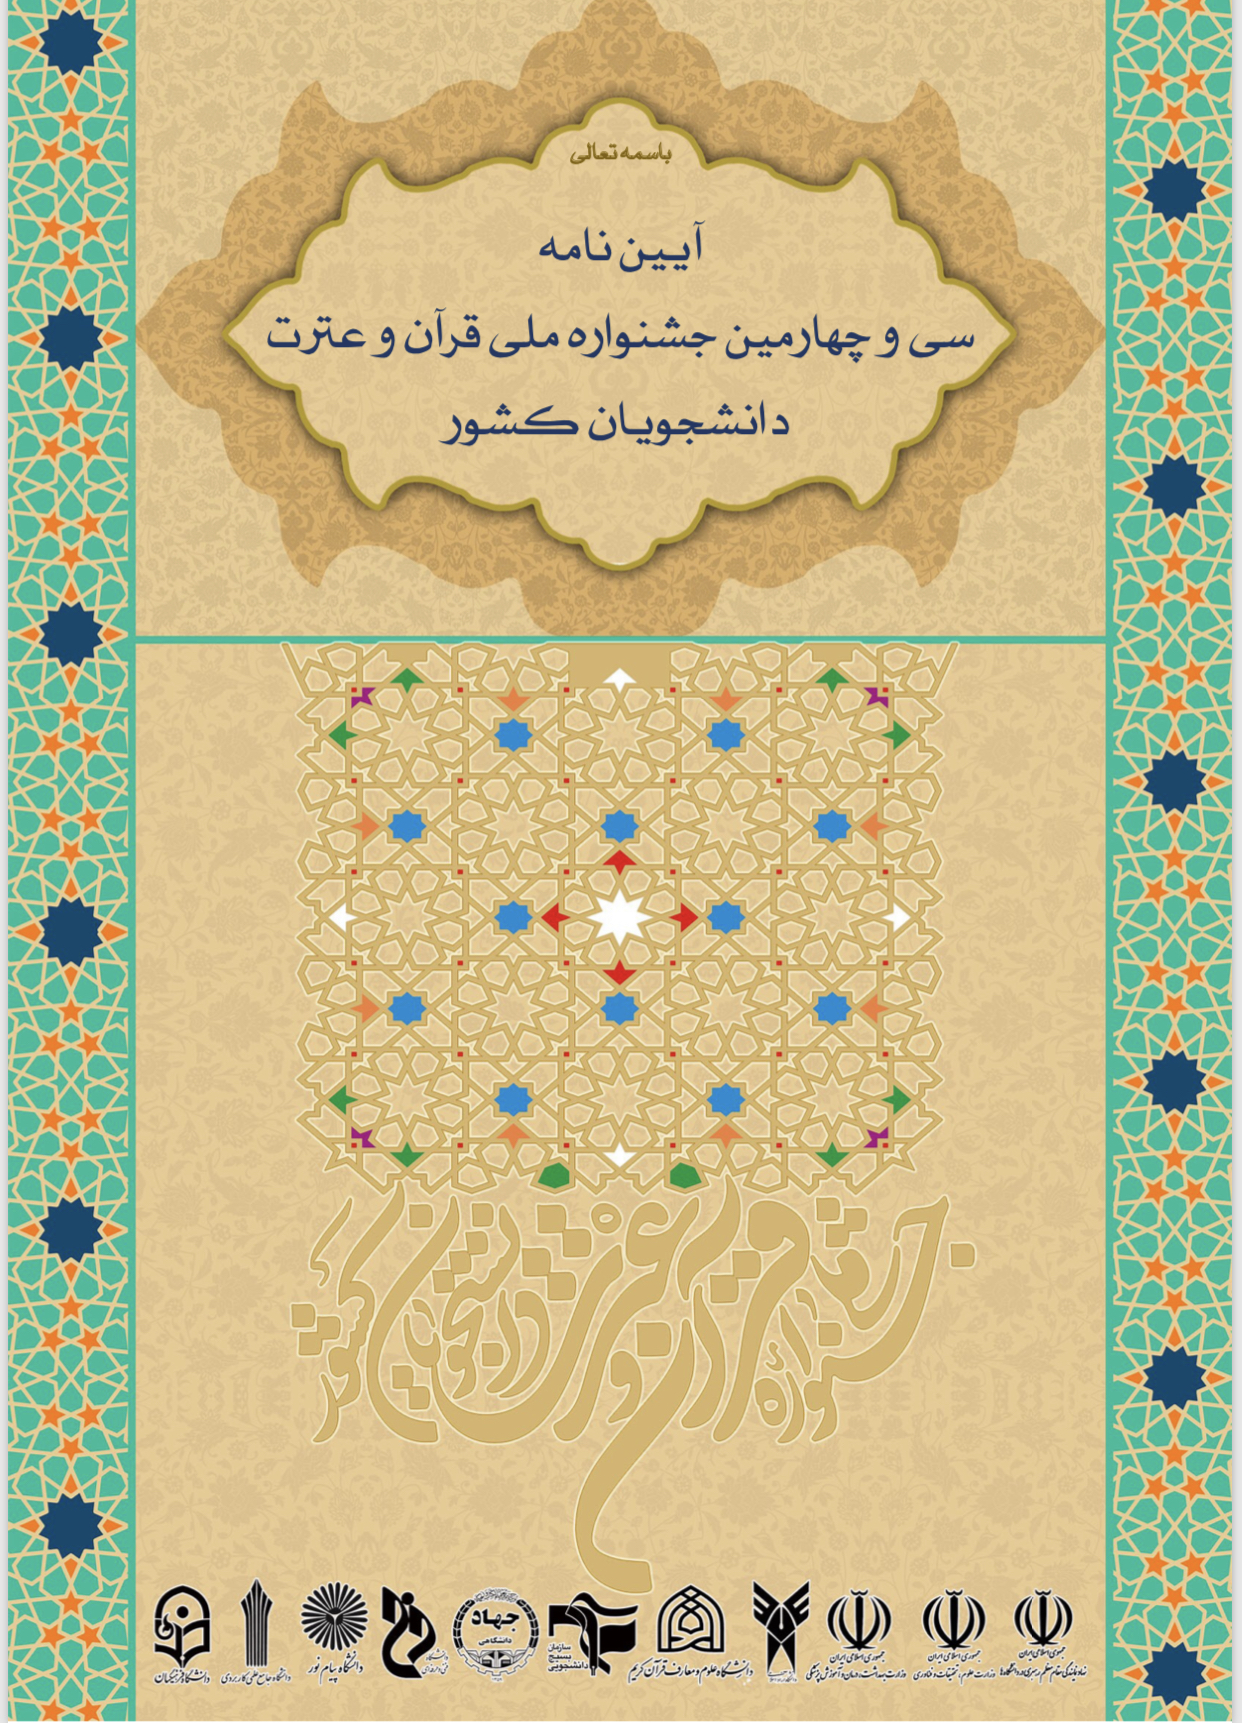 باسمه تعالی
آیین نامه
سی و چهارمین جشنواره ملی قرآن و عترت
دانشجویان کشور
جشنواره قرآن و عترت دانشجویان کشور
جمهوری اسلامی ایران
نهاد نمایندگی مقام معظم رهبری در دانشگاه‌ها
جمهوری اسلامی ایران
وزارت علوم، تحقیقات و فناوری
جمهوری اسلامی ایران
وزارت بهداشت، درمان و آموزش پزشکی
دانشگاه علوم و معارف قرآن کریم
سازمان
بسیج
دانشجویی
جهاد
دانشگاهی
دانشگاه پیام نور
دانشگاه جامع علمی کاربردی
دانشگاه فرهنگیان